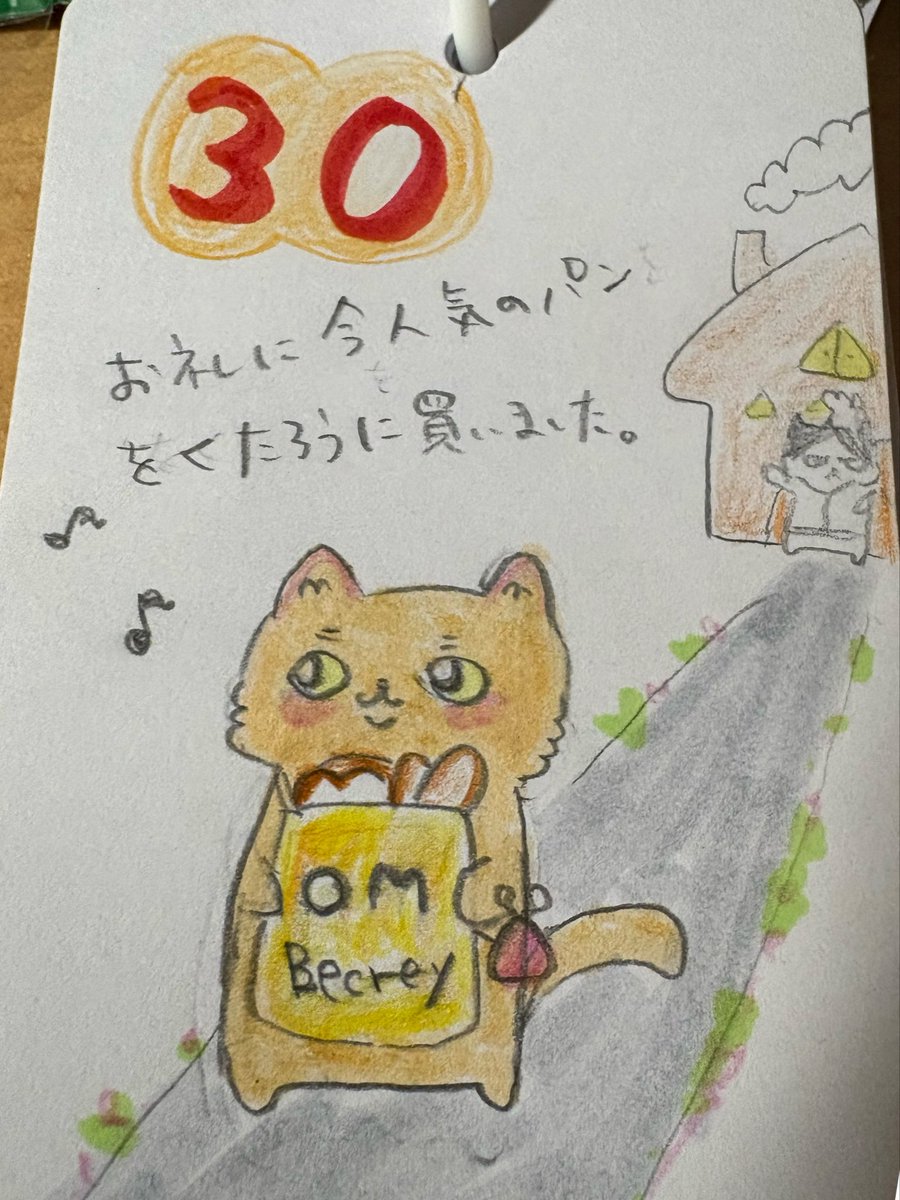 30
お礼に今人気のパン
をくたろうに買いました。
OM
Becrey